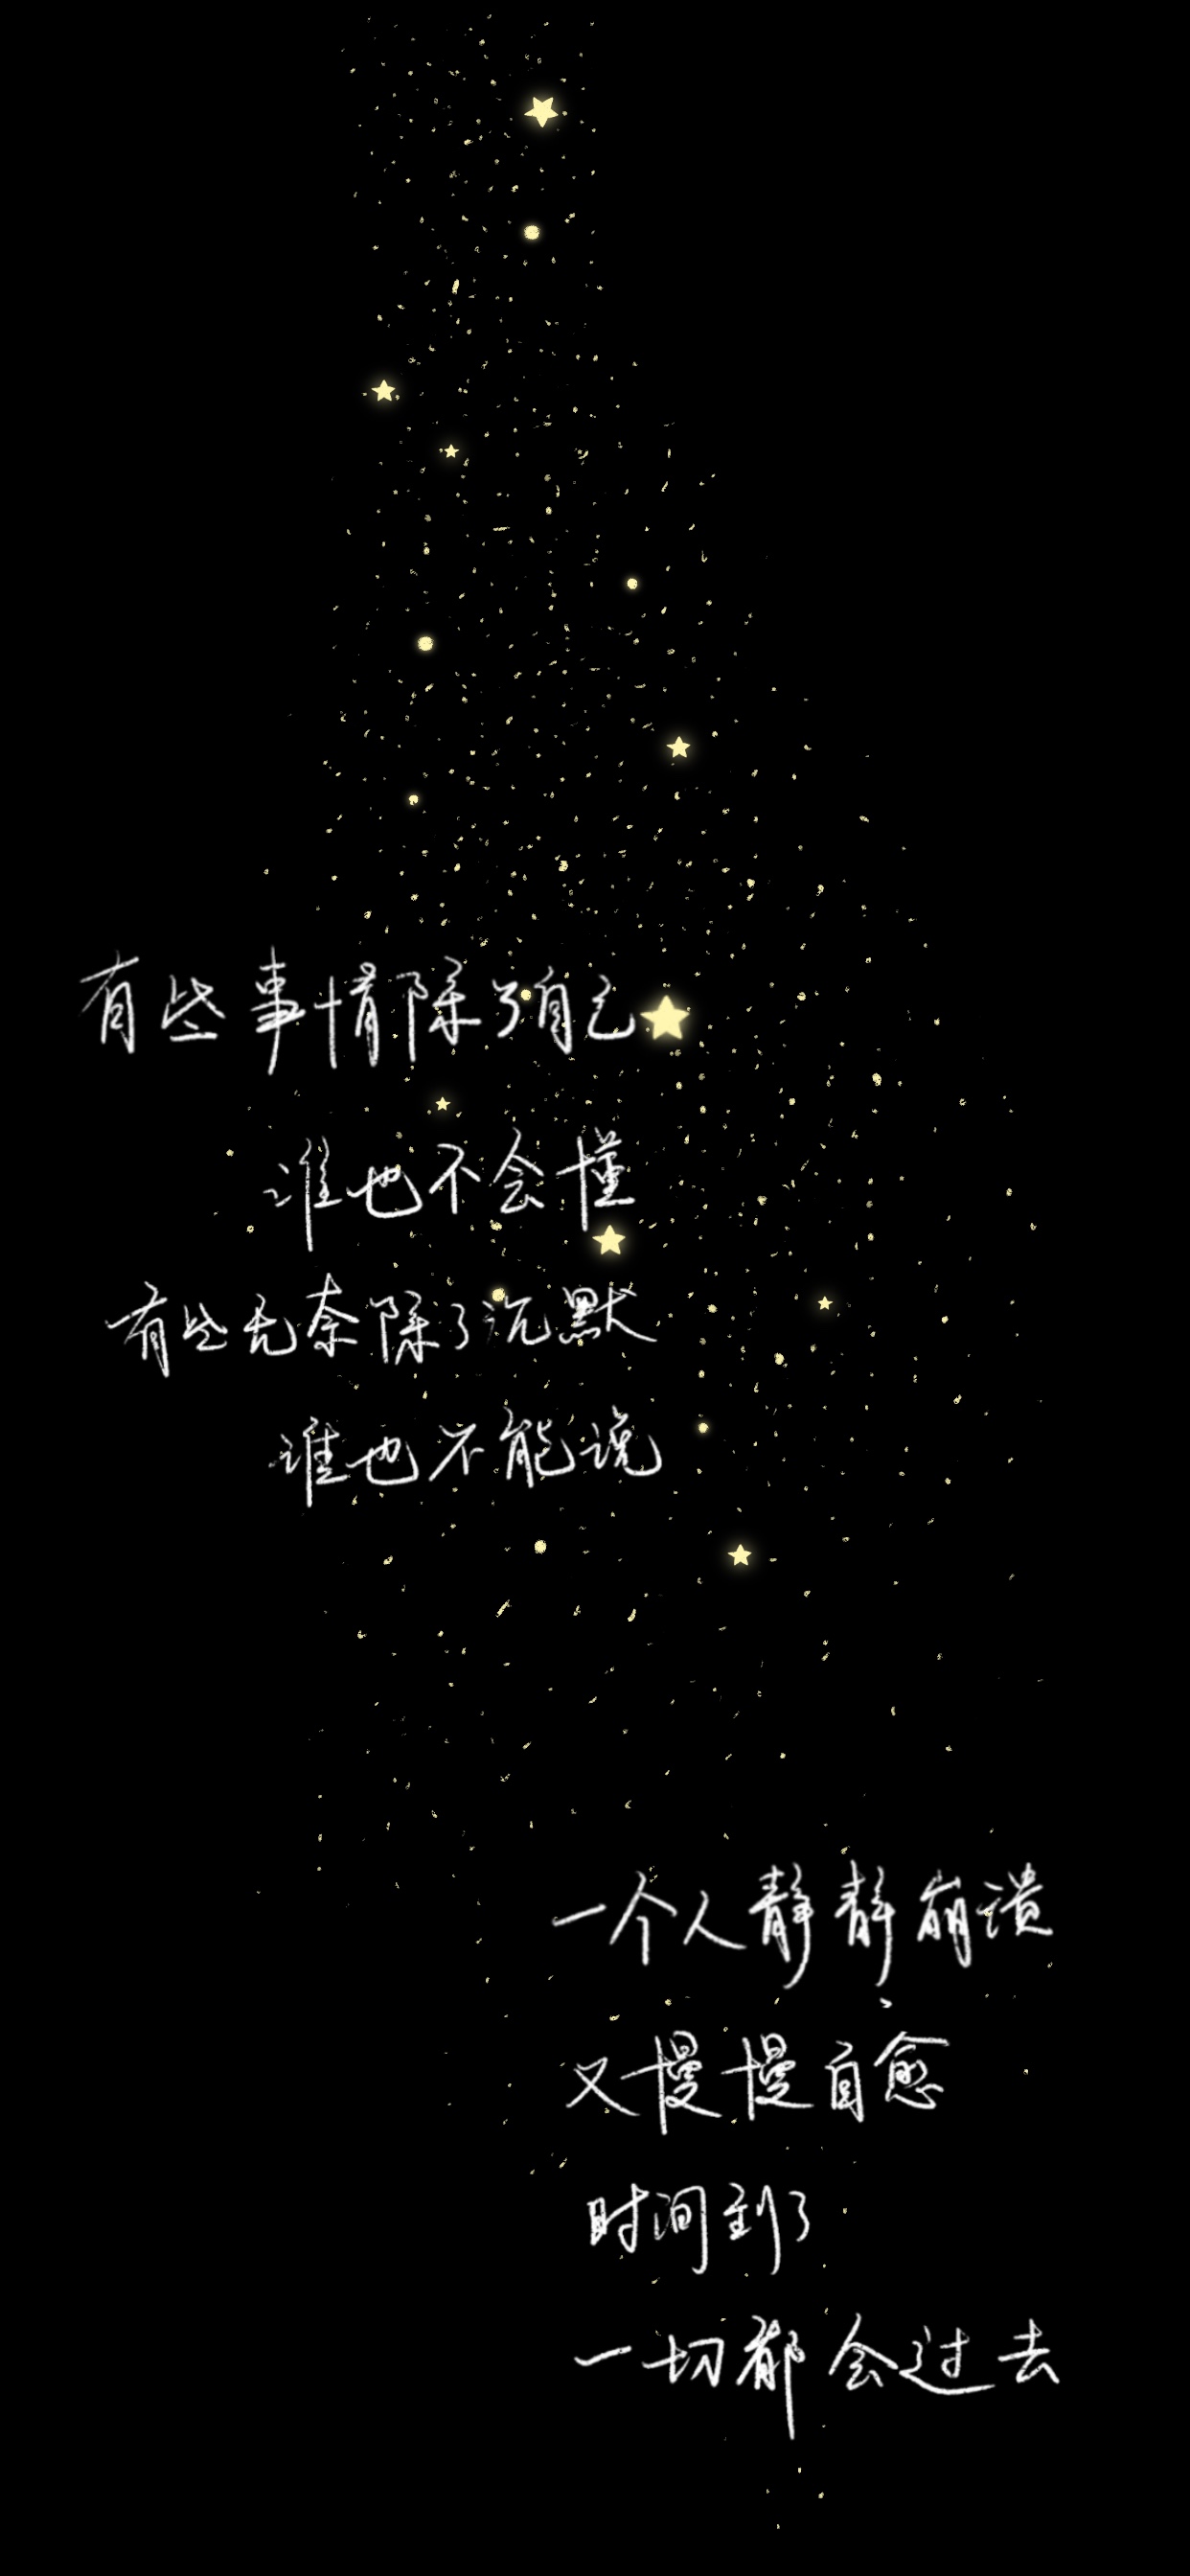 有些事情除了自己
谁也不会懂
有些无奈除了沉默
谁也不能说
一个人静静崩溃
又慢慢自愈
时间到了
一切都会过去